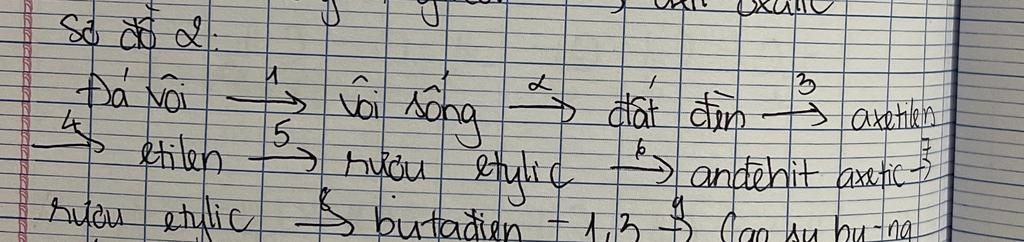 Sơ đồ 2:
Đá vôi —1→ vôi sống —2→ đất đèn —3→ axetilen
—4→ etilen —5→ rượu etylic —6→ andehit axetic —7→
rượu etylic —8→ butadien - 1,3 —9→ Cao su bu-na